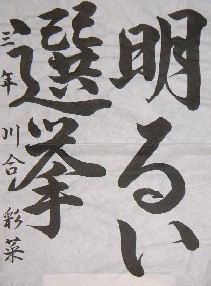 明るい
選挙
三年 川合 彩菜